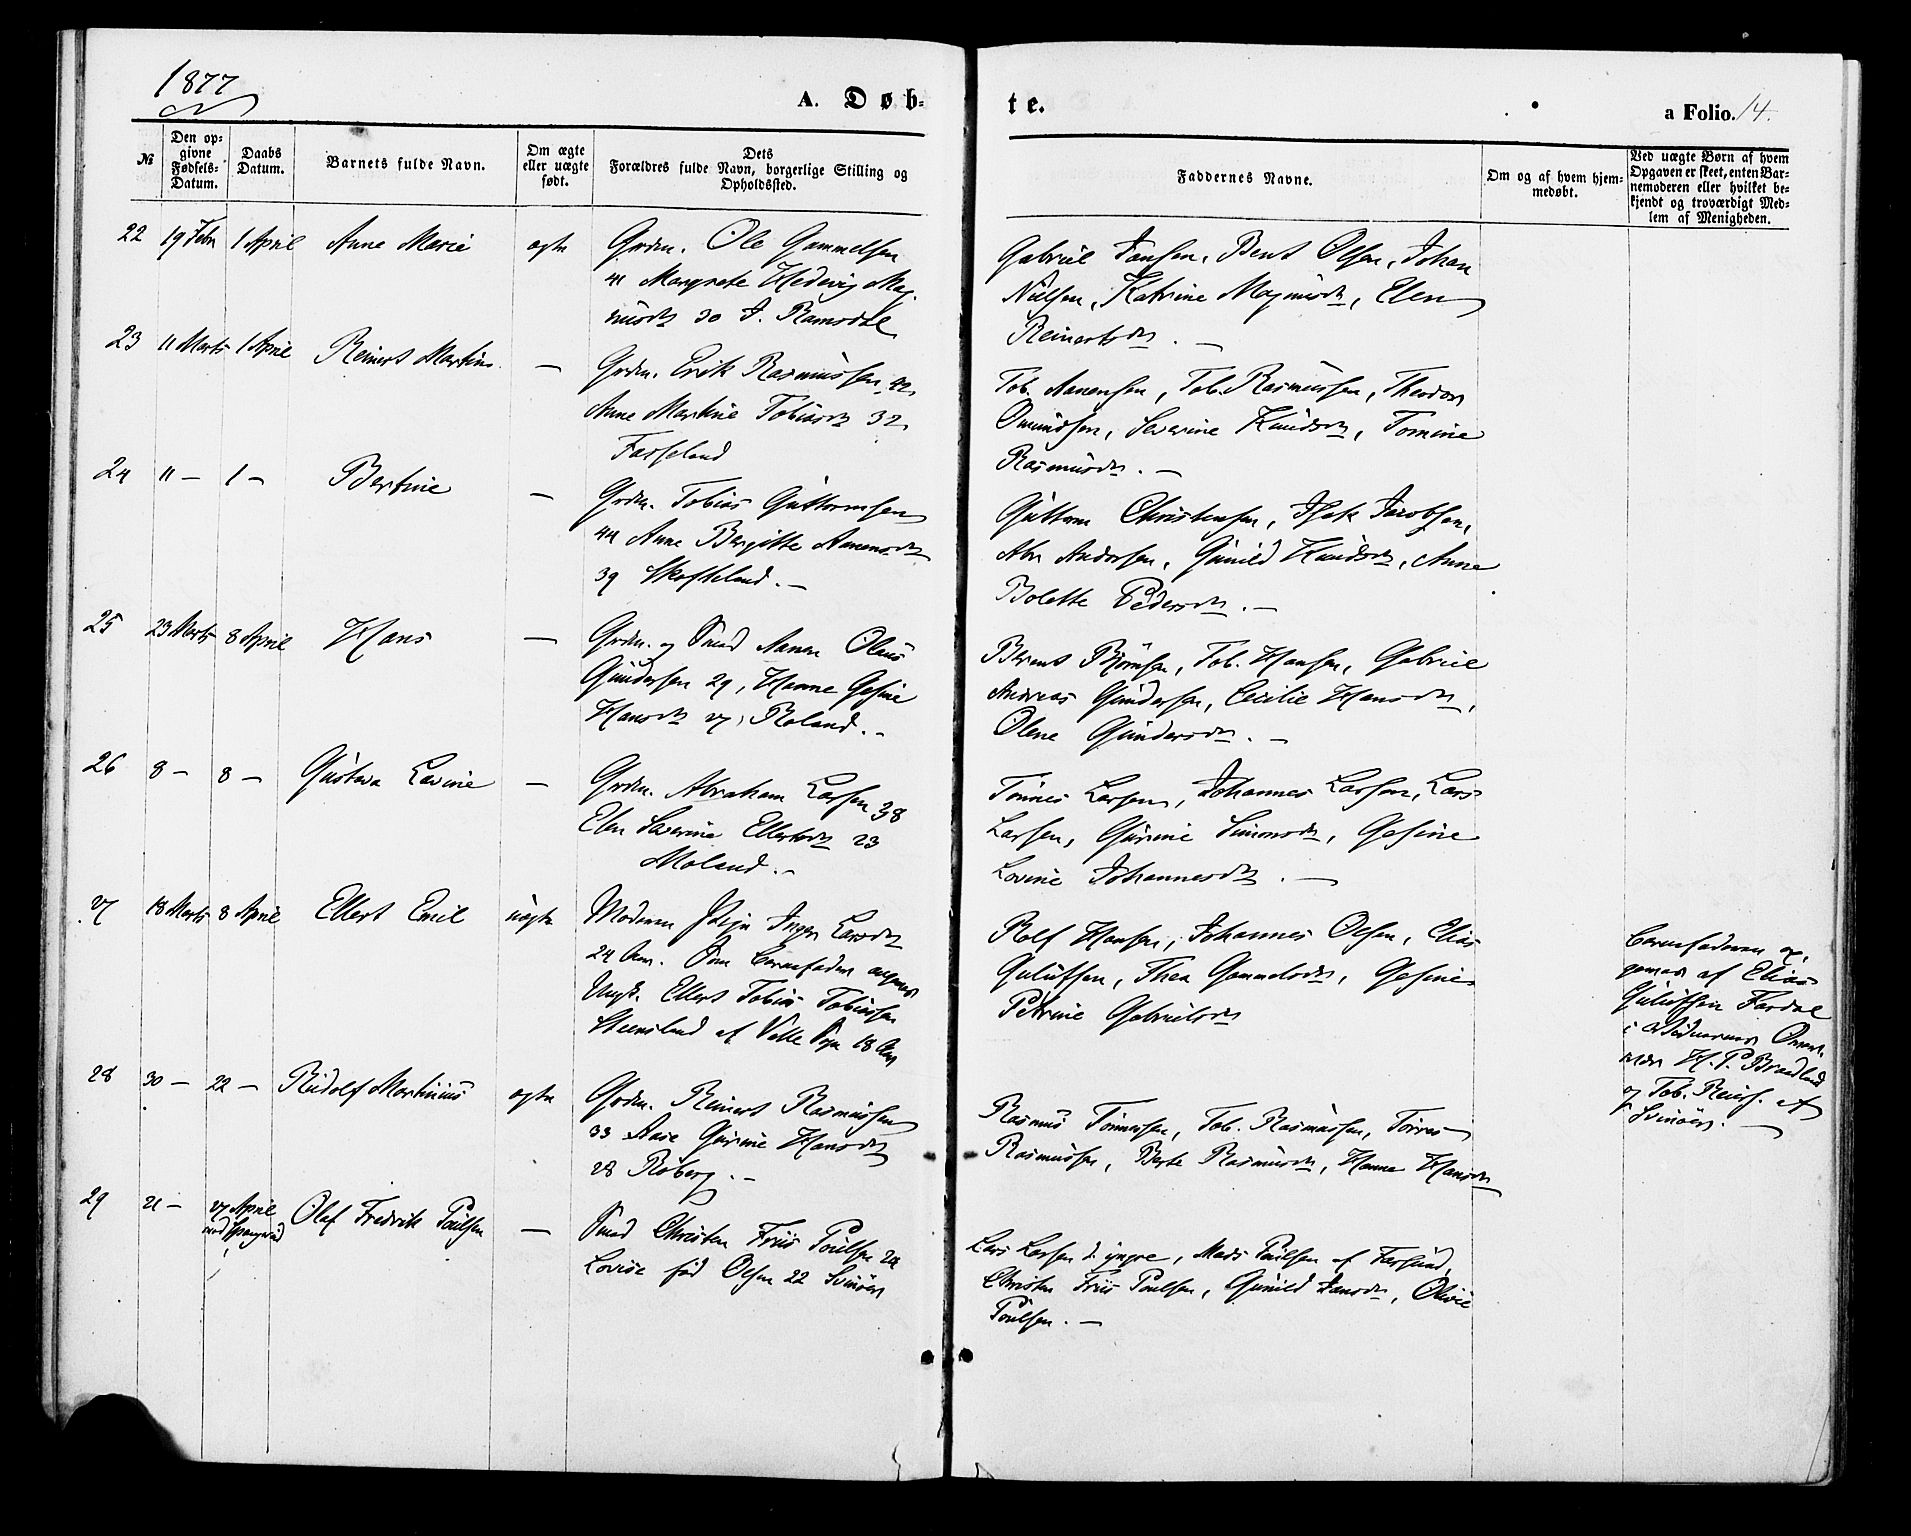 1877
A. Døb-
te.
a Folio. 14.
№
Den op-
givne
Fødsels-
Datum.
Daabs
Datum.
Barnets fulde Navn.
Om ægte
eller uægte
født.
Dets
Forældres fulde Navn, borgerlige Stilling og
Opholdssted.
Faddernes Navne.
Om og af hvem hjem-
medøbt.
Ved uægte Børn af hvem
Opgaven er skeet, enten Bar-
nemoderen eller hvilket be-
kjendt og troværdigt Med-
lem af Menigheden.
22 19 Febr 1 April Anne Marie ægte Grdm. Ole Gammelsen
41 Margrete Hedevig Mag-
nusdtr 30 J. Ramsdal
Gabriel Jansen, Bent Olsen, Johan
Nielsen, Katrine Magnusdtr, Elen
Reinertsdtr. —
23 11 Marts 1 April Reinert Martin — Grdm. Erik Rasmussen 42,
Anne Martine Tobiasdtr 32
Fasseland
Tob. Aanensen, Tob. Rasmussen, Theodor
Omundsen, Severine Knudsdtr, Tomine
Rasmusdtr. —
24 11 — 1 — Bertine — Grdm. Tobias Guttormsen
44 Anne Bergitte Aanensdtr
39 Skofteland. —
Guttorm Christensen, Isak Jacobsen,
Abr Andersen, Gunild Knudsdtr, Anne
Bolette Pedersdtr. —
25 23 Marts 8 April Hans — Grdm. og Smed Aanen Olaus
Gundersen 29, Hanne Gesine
Hansdtr 27, Roland. —
Berent Bjørnsen, Tob. Hansen, Gabriel
Andreas Gundersen, Cecilie Hansdtr,
Olene Gundersdtr. —
26 8 — 8 — Gustava Lovine — Grdm. Abraham Larsen 38
Elen Severine Ellertsdtr 23
Moland. —
Tønnes Larsen, Johannes Larsen, Lars
Larsen, Gurine Simonsdtr, Gesine
Lovine Johannesdtr. —
27 18 Marts 8 April Ellert Emil uægte Moderen Pige Inger Larsdtr
24 Aar. Som Barnefader angives
Ungk. Ellert Tobias Tobiassen
Steensland af Valle Sogn 18 Aar
Rolf Hansen, Johannes Olsen, Elias
Gulutsen, Thea Gammelsdtr, Gesine
Petrine Gabrielsdtr
Barnefaderen op-
given af Elias
Gulutsen Fardal
i Vidnerne
H. P. Braadland
og Tob. Reiers. af
Svinøer. —
28 30 — 22 — Rudolf Martinius ægte Grdm. Reinert Rasmussen
33 Gurine Hansdtr
28 Roberg. —
Rasmus Tønnessen, Tob. Rasmussen, Torres
Rasmussen, Berte Rasmusdtr, Hanne Hansdtr
29 21 — 27 April
Olaf Fredrik Poulsen — Smed Christen Friis Poulsen 24
Lovise fød Olsen 22 Svinøer
Lars Larsen d. yngre, Mads Poulsen af Farsund,
Christen Friis Poulsen, Gunild Jansdtr, Olivie
Poulsen. —